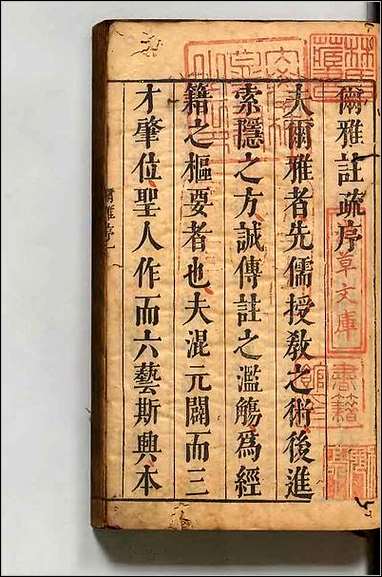 爾雅註疏序
夫爾雅者先儒授教之術後進
索隱之方誠傳註之濫觴為經
籍之樞要者也夫混元闢而三
才肇位聖人作而六藝斯興本
爾雅序一
草文庫
書籍